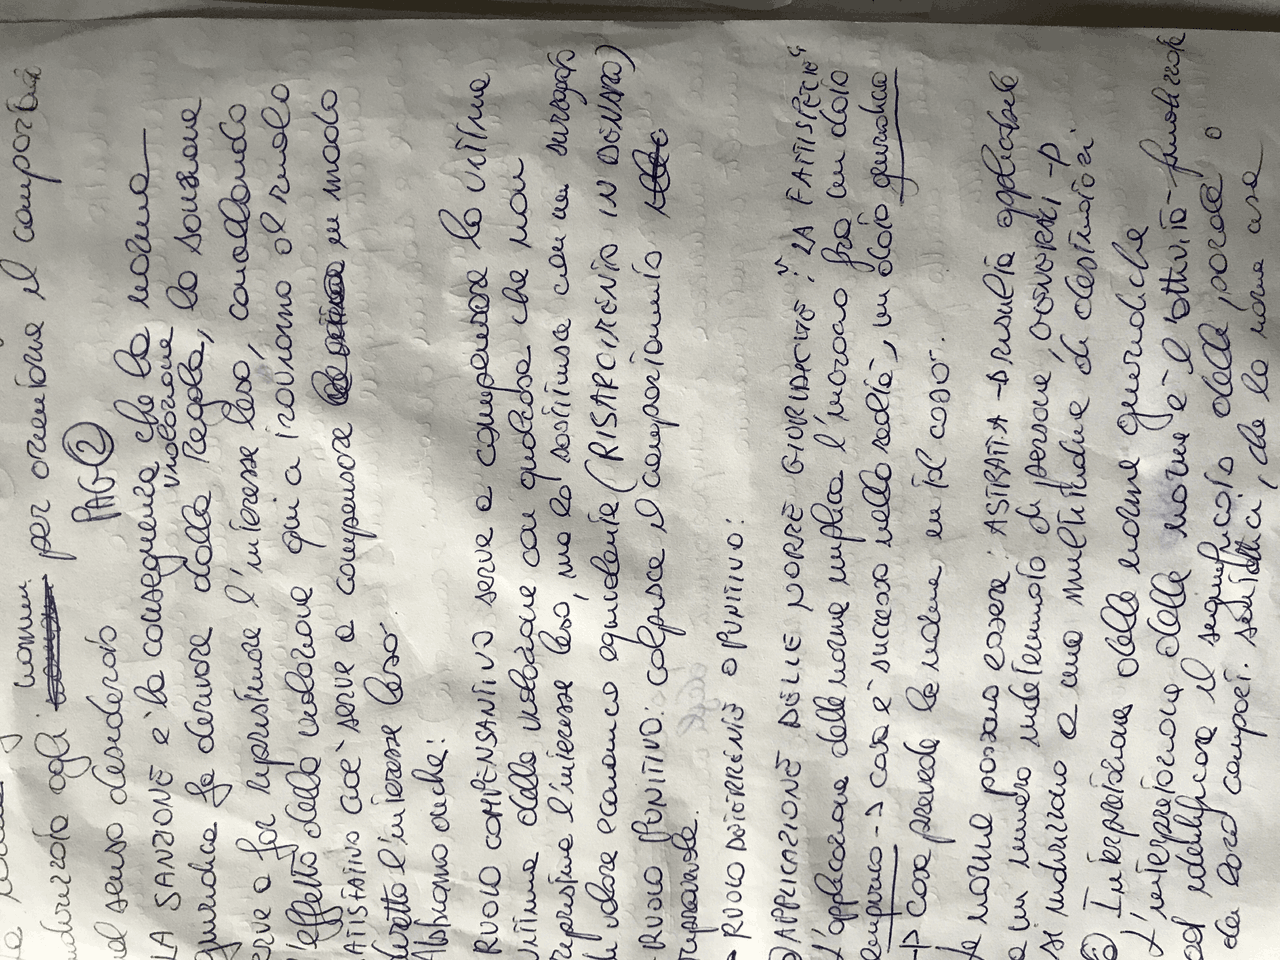 indirizzato agli uomini per orientarne il comportam
nel senso desiderato PAG 2
LA SANZIONE è la conseguenza che la norma
giuridica fa derivare dalla violazione della regola, la sanzione
serve a far ripristinare l'interesse leso, cancellando
l'effetto della violazione qui si troviamo il ruolo
cioè serve a compensare in modo
diretto l'interesse leso
Abbiamo anche:
RUOLO COMPENSATIVO serve a compensare la vittima
vittima della violazione con qualcosa che non
ripristina l'interesse leso, ma lo sostituisce con un surrogato
di valore economico equivalente (RISARCIMENTO IN DENARO)
- RUOLO PUNITIVO: colpisce il comportamento
- RUOLO DETERRENTE O PUNITIVO:
) APPLICAZIONE DELLE NORME GIURIDICHE: "LA FATTISPECIE"
L'applicazione delle norme implica l'incrocio fra un dato
empirico → cosa è successo nella realtà, un dato giuridico
→ cosa prevede la norma in tal caso.
Le norme possono essere: ASTRATTA → risulta applicabile
a un numero indeterminato di persone, →
si indirizzano a una moltitudine di destinatari.
Interpretazione delle norme giuridiche
L'interpretazione delle norme è l'attività finalizzata
ad identificare il significato delle parole
da cui composi. , che la norma usa